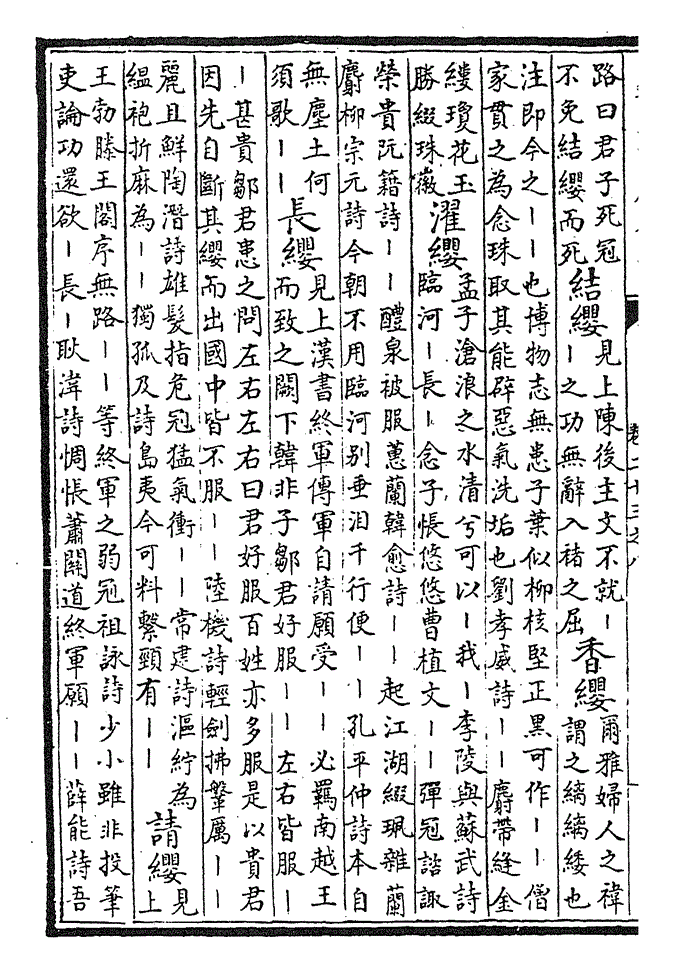 路曰君子死冠
不免結纓而死
結纓
見上陳後主文不就丨
丨之功無辭入褚之屈
香纓
爾雅婦人之褘
謂之縭縭緌也
注即今之丨丨也博物志無患子葉似柳核堅正黑可作丨丨僧
家貫之為念珠取其能辟惡氣洗垢也劉孝威詩丨丨麝帶縫金
縷瓊花玉
勝綴珠徽
濯纓
孟子滄浪之水清兮可以丨我丨李陵與蘇武詩
臨河丨長丨念子悵悠悠曹植文丨丨彈冠諮諏
榮貴阮籍詩丨丨醴泉被服蕙蘭韓愈詩丨丨起江湖綴珮雜蘭
麝柳宗元詩今朝不用臨河別垂泪千行便丨丨孔平仲詩本自
無塵土何
須歌丨丨
長纓
見上漢書終軍傳軍自請願受丨丨必羈南越王
而致之闕下韓非子鄒君好服丨丨左右皆服丨
丨甚貴鄒君患之問左右左右曰君好服百姓亦多服是以貴君
因先自斷其纓而出國中皆不服丨丨陸機詩輕劍拂鞶厲丨丨
麗且鮮陶潛詩雄髮指危冠猛氣衝丨丨常建詩漚紵為
緼袍折麻為丨丨獨孤及詩島夷今可料繫頸有丨丨
請纓
見
上
王勃滕王閣序無路丨丨等終軍之弱冠祖詠詩少小雖非投筆
吏論功還欲丨長丨耿湋詩惆悵蕭關道終軍願丨丨薛能詩吾